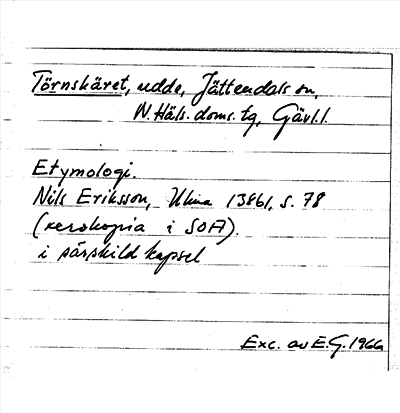 Törnskäret, udde, Jättendals sn,
N. Häls. doms. tg, Gävl.l.
Etymologi.
Nils Eriksson, Ulma 13861, s. 78
(xerokopia i SOFI).
i särskild kapsel
Exc. av E.G. 1966